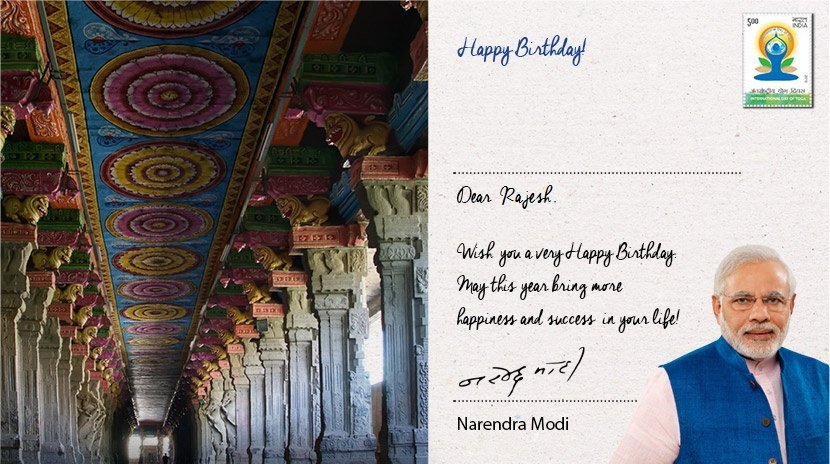 Happy Birthday!
5.00
भारत
INDIA
अंतर्राष्ट्रीय योग दिवस
INTERNATIONAL DAY OF YOGA
Dear Rajesh,
Wish you a very Happy Birthday.
May this year bring more
happiness and success in your life!
नरेन्द्र मोदी
Narendra Modi